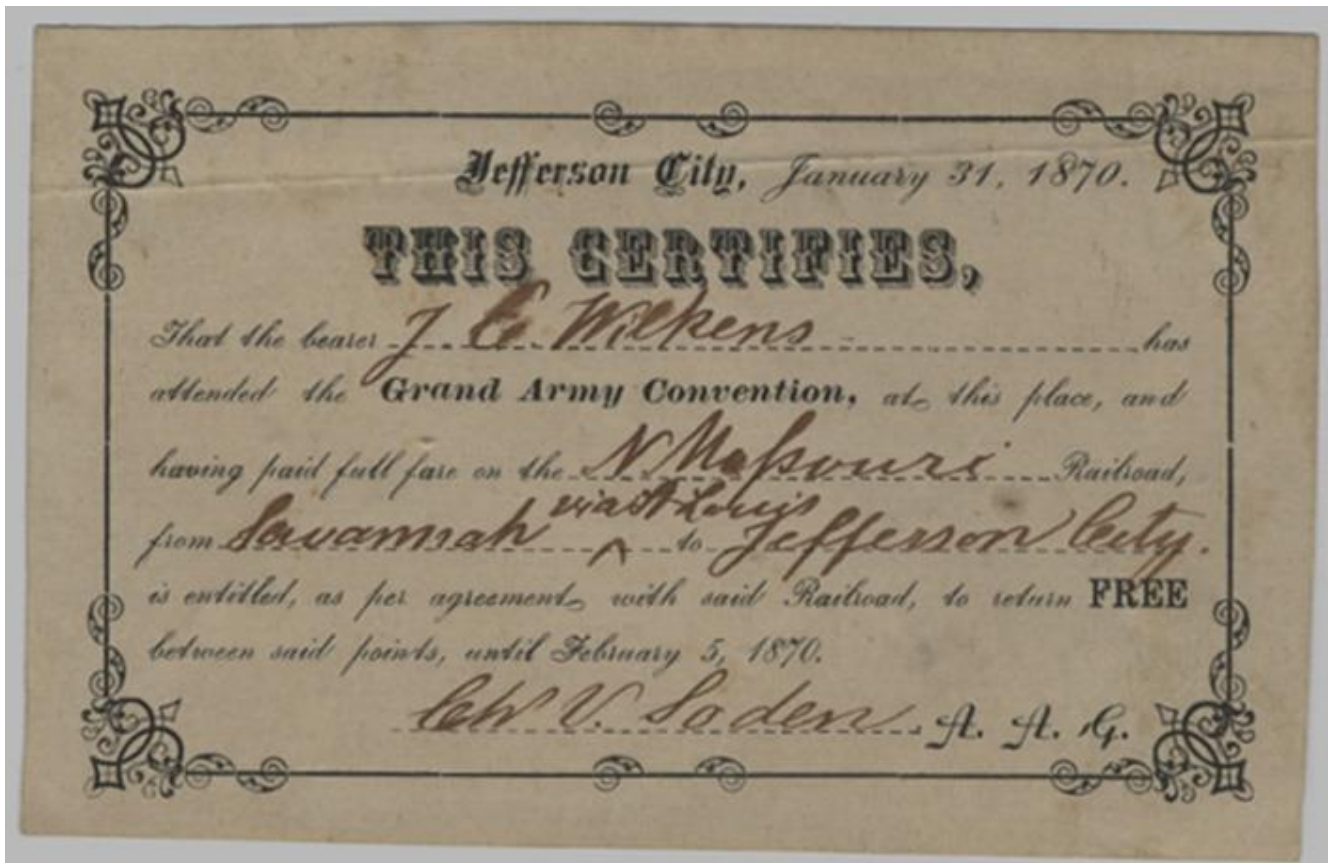 Jefferson City, January 31, 1870.
THIS CERTIFIES,
That the bearer J. C. Wilkens has
attended the Grand Army Convention, at this place, and
having paid full fare on the N Missouri Railroad,
from Savannah ^ via St Louis to Jefferson City.
is entitled, as per agreement with said Railroad, to return FREE
between said points, until February 5, 1870.
V. Soden A. A. G.